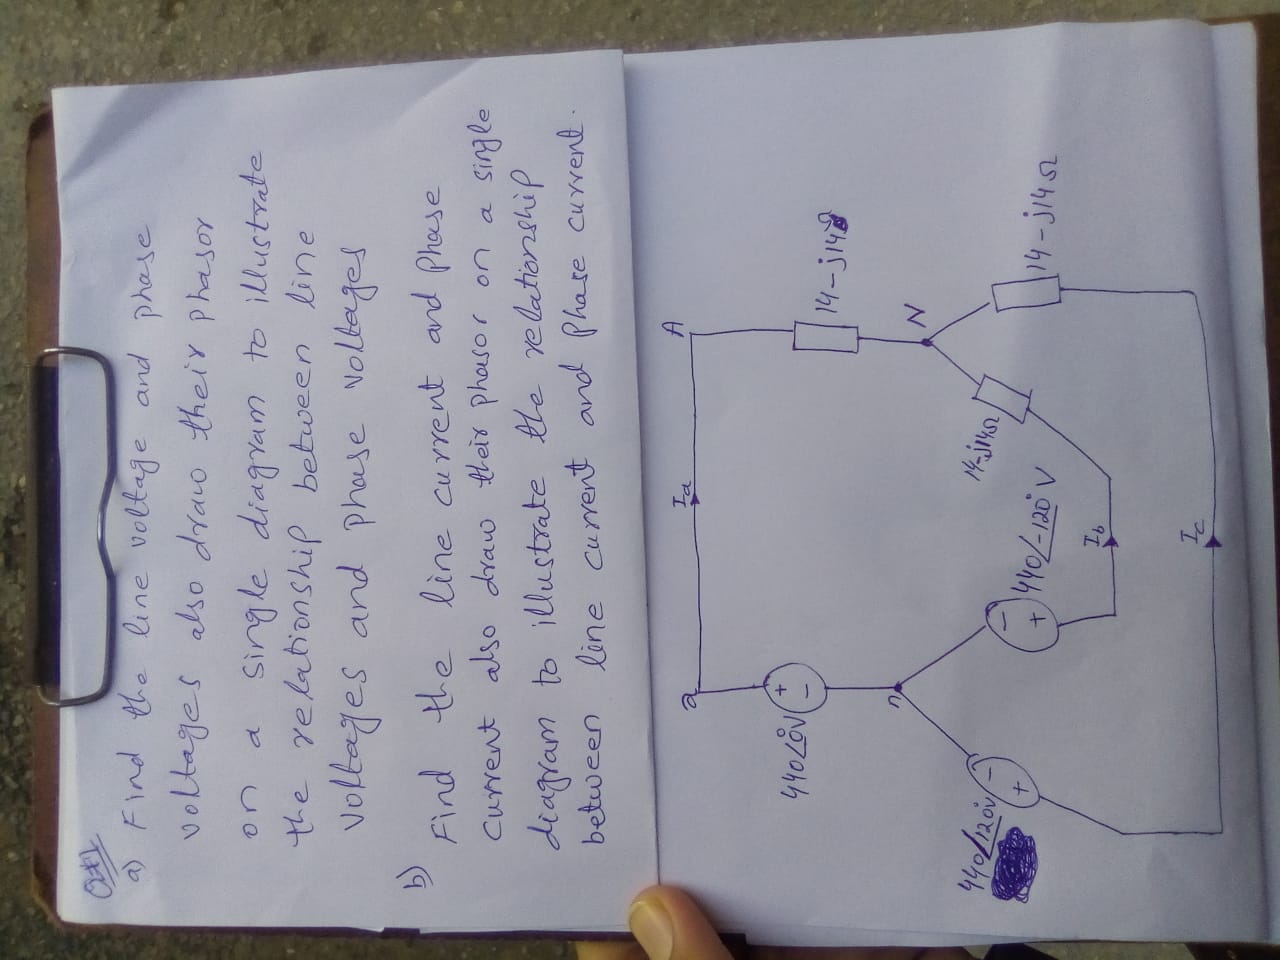 Q#1
a) Find the line voltage and phase
voltages also draw their phasor
on a single diagram to illustrate
the relationship between line
voltages and phase voltages
b) Find the line current and phase
current also draw their phasor on a single
diagram to illustrate the relationship
between line current and phase current.
a
Ia
A
440∠0°V
+
-
14-j14Ω
n
N
440∠120°V
-
+
-
+
440∠-120°V
14-j14Ω
14-j14Ω
Ib
Ic